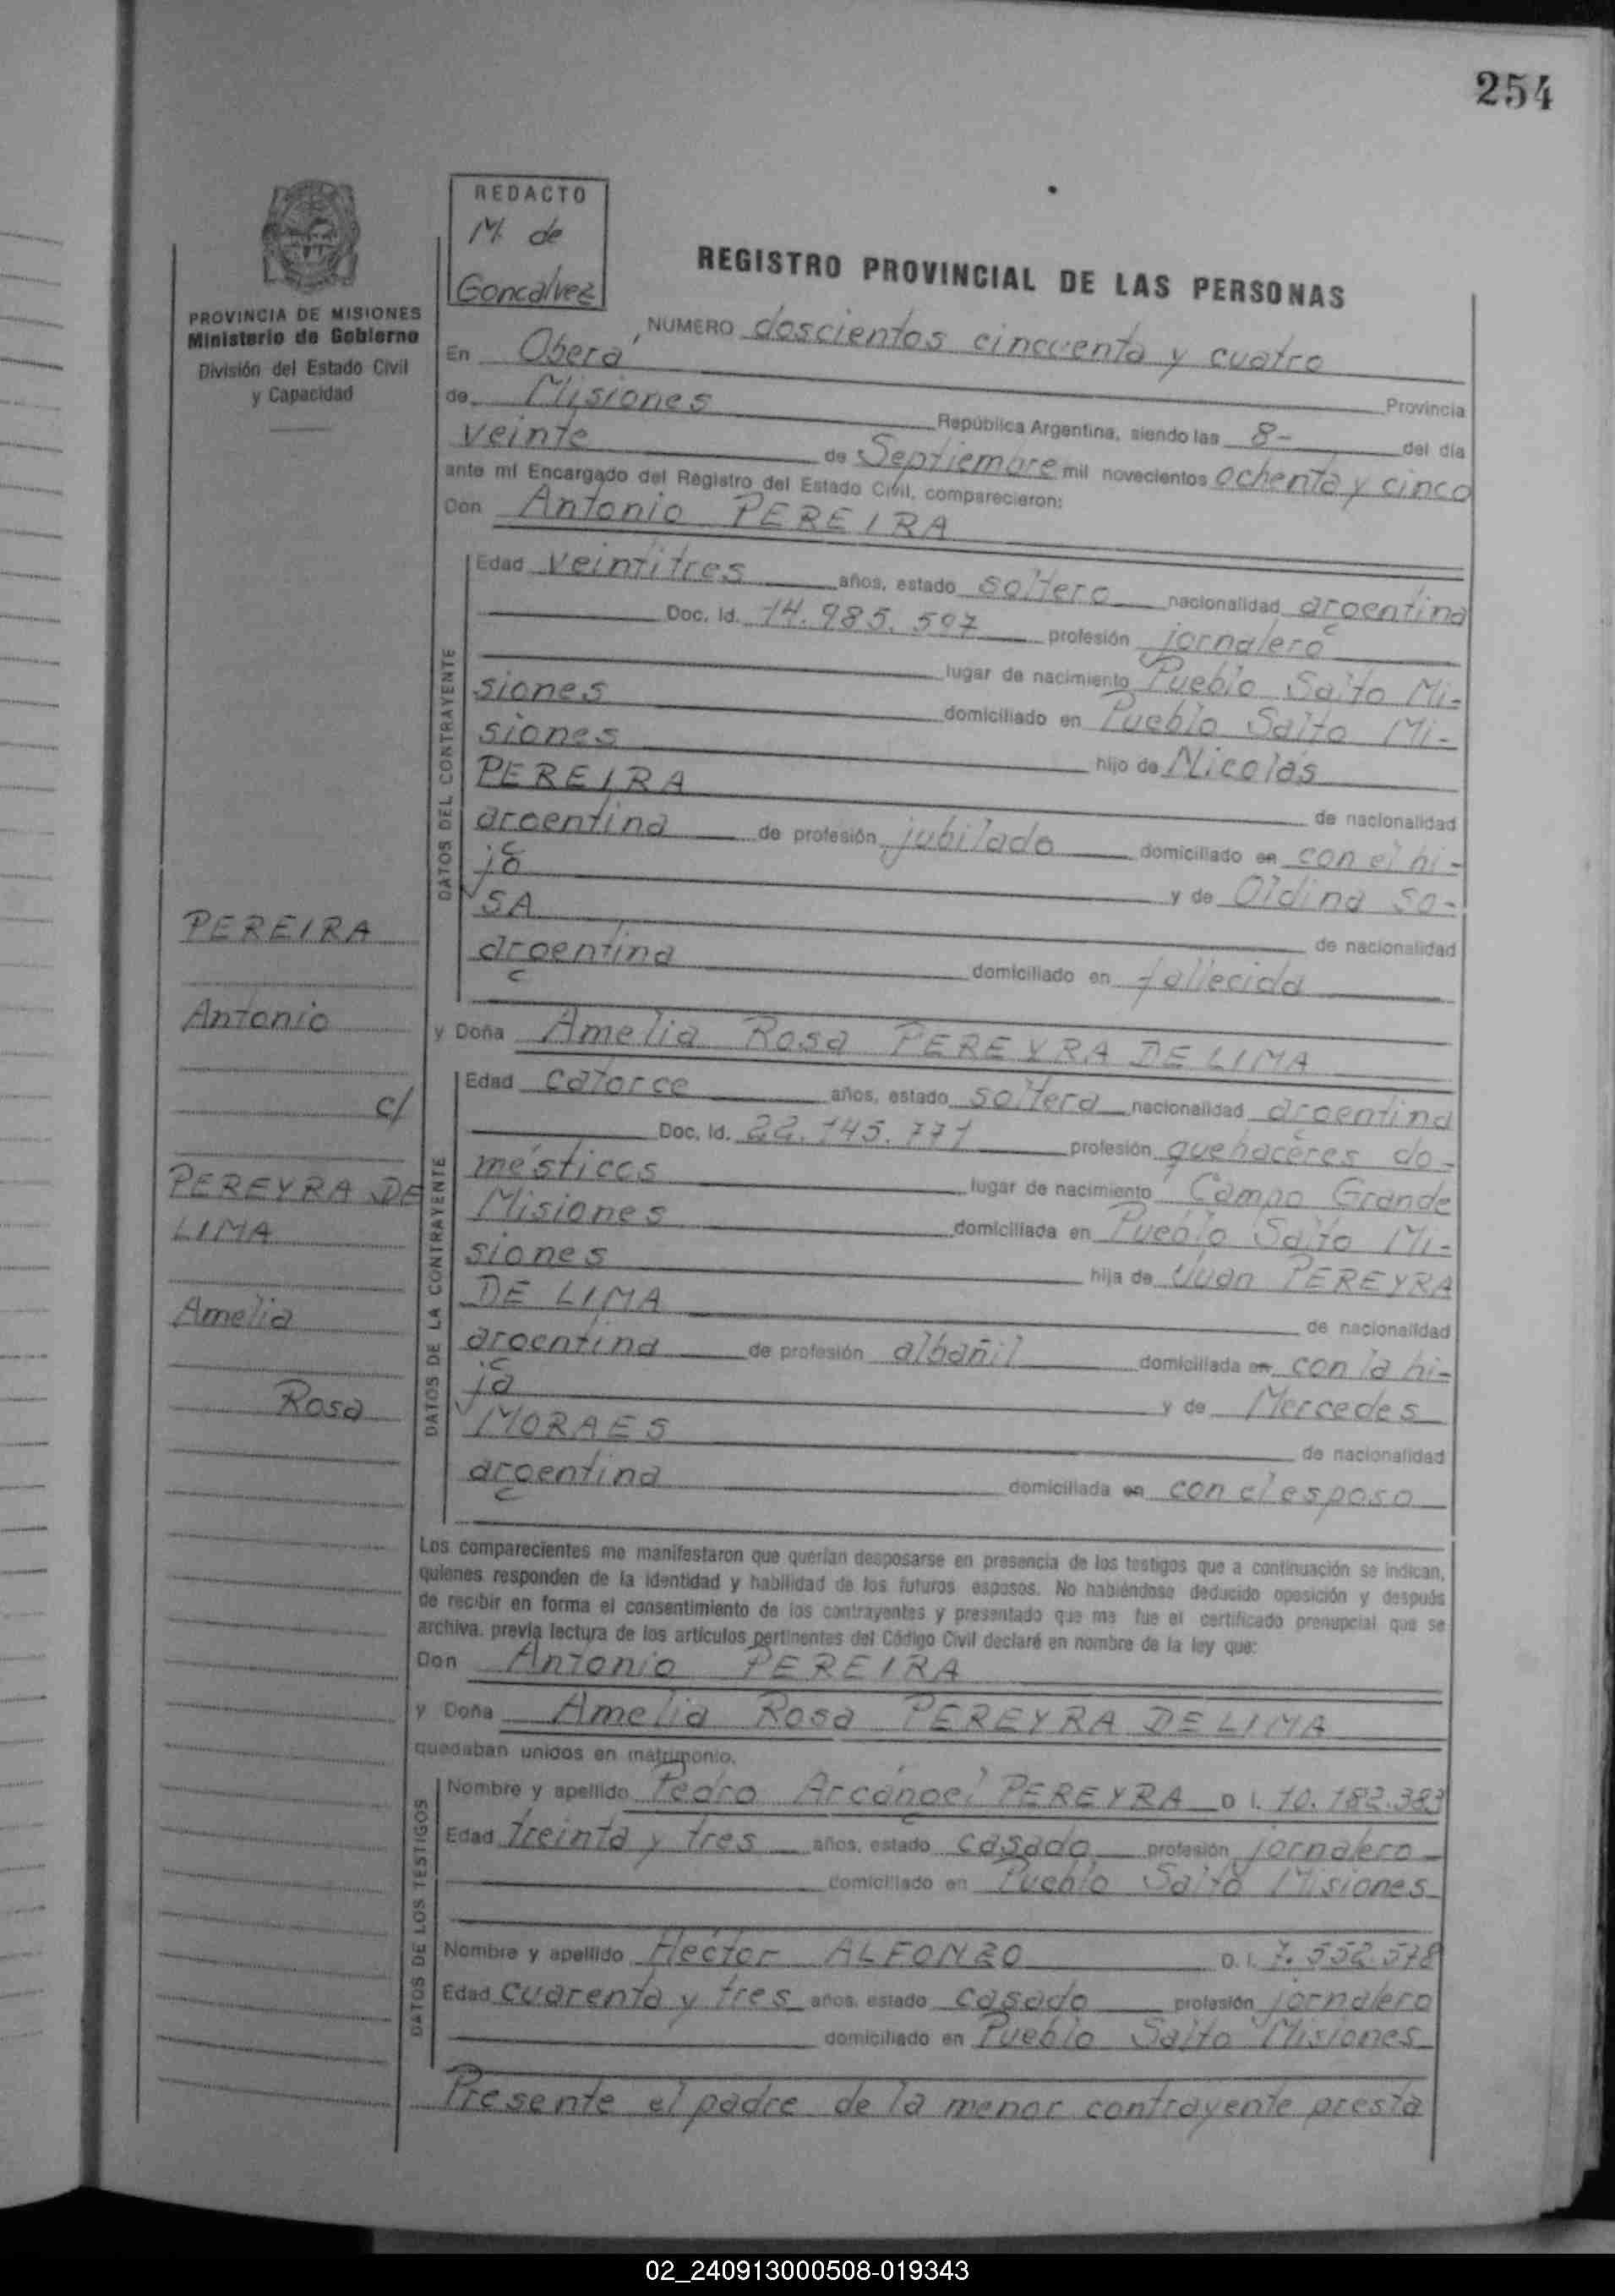 254
REDACTO
M. de
Goncalvez
PROVINCIA DE MISIONES
Ministerio de Gobierno
División del Estado Civil
y Capacidad
REGISTRO PROVINCIAL DE LAS PERSONAS
NUMERO doscientos cincuenta y cuatro
En Oberá Provincia
de Misiones República Argentina, siendo las 8- del día
veinte de Septiembre mil novecientos ochenta y cinco
ante mí Encargado del Registro del Estado Civil, comparecieron:
Don Antonio PEREIRA
DATOS DEL CONTRAYENTE
Edad veintitres años, estado soltero nacionalidad argentina
Doc. Id. 14.985.507 profesión jornalero
lugar de nacimiento Pueblo Salto Mi-
siones domiciliado en Pueblo Salto Mi-
siones hijo de Nicolás
PEREIRA de nacionalidad
argentina de profesión jubilado domiciliado en con el hi-
jo y de Oldina SO-
SA de nacionalidad
argentina domiciliado en fallecida
y Doña Amelia Rosa PEREYRA DE LIMA
DATOS DE LA CONTRAYENTE
Edad catorce años, estado soltera nacionalidad argentina
Doc. Id. 22.145.771 profesión quehaceres do-
mésticos lugar de nacimiento Campo Grande
Misiones domiciliada en Pueblo Salto Mi-
siones hija de Juan PEREYRA
DE LIMA de nacionalidad
argentina de profesión albañil domiciliada en con la hi-
ja y de Mercedes
MORAES de nacionalidad
argentina domiciliada en con el esposo
PEREIRA
Antonio
c/
PEREYRA DE
LIMA
Amelia
Rosa
Los comparecientes me manifestaron que querían desposarse en presencia de los testigos que a continuación se indican,
quienes responden de la identidad y habilidad de los futuros esposos. No habiéndose deducido oposición y después
de recibir en forma el consentimiento de los contrayentes y presentado que me fue el certificado prenupcial que se
archiva, previa lectura de los artículos pertinentes del Código Civil declaré en nombre de la ley que:
Don Antonio PEREIRA
y Doña Amelia Rosa PEREYRA DE LIMA
quedaban unidos en matrimonio.
DATOS DE LOS TESTIGOS
Nombre y apellido Pedro Arcángel PEREYRA D I. 10.182.383
Edad treinta y tres años, estado casado profesión jornalero
domiciliado en Pueblo Salto Misiones
Nombre y apellido Héctor ALFONZO D. I. 7.552.578
Edad cuarenta y tres años, estado casado profesión jornalero
domiciliado en Pueblo Salto Misiones
Presente el padre de la menor contrayente presta
02_240913000508-019343